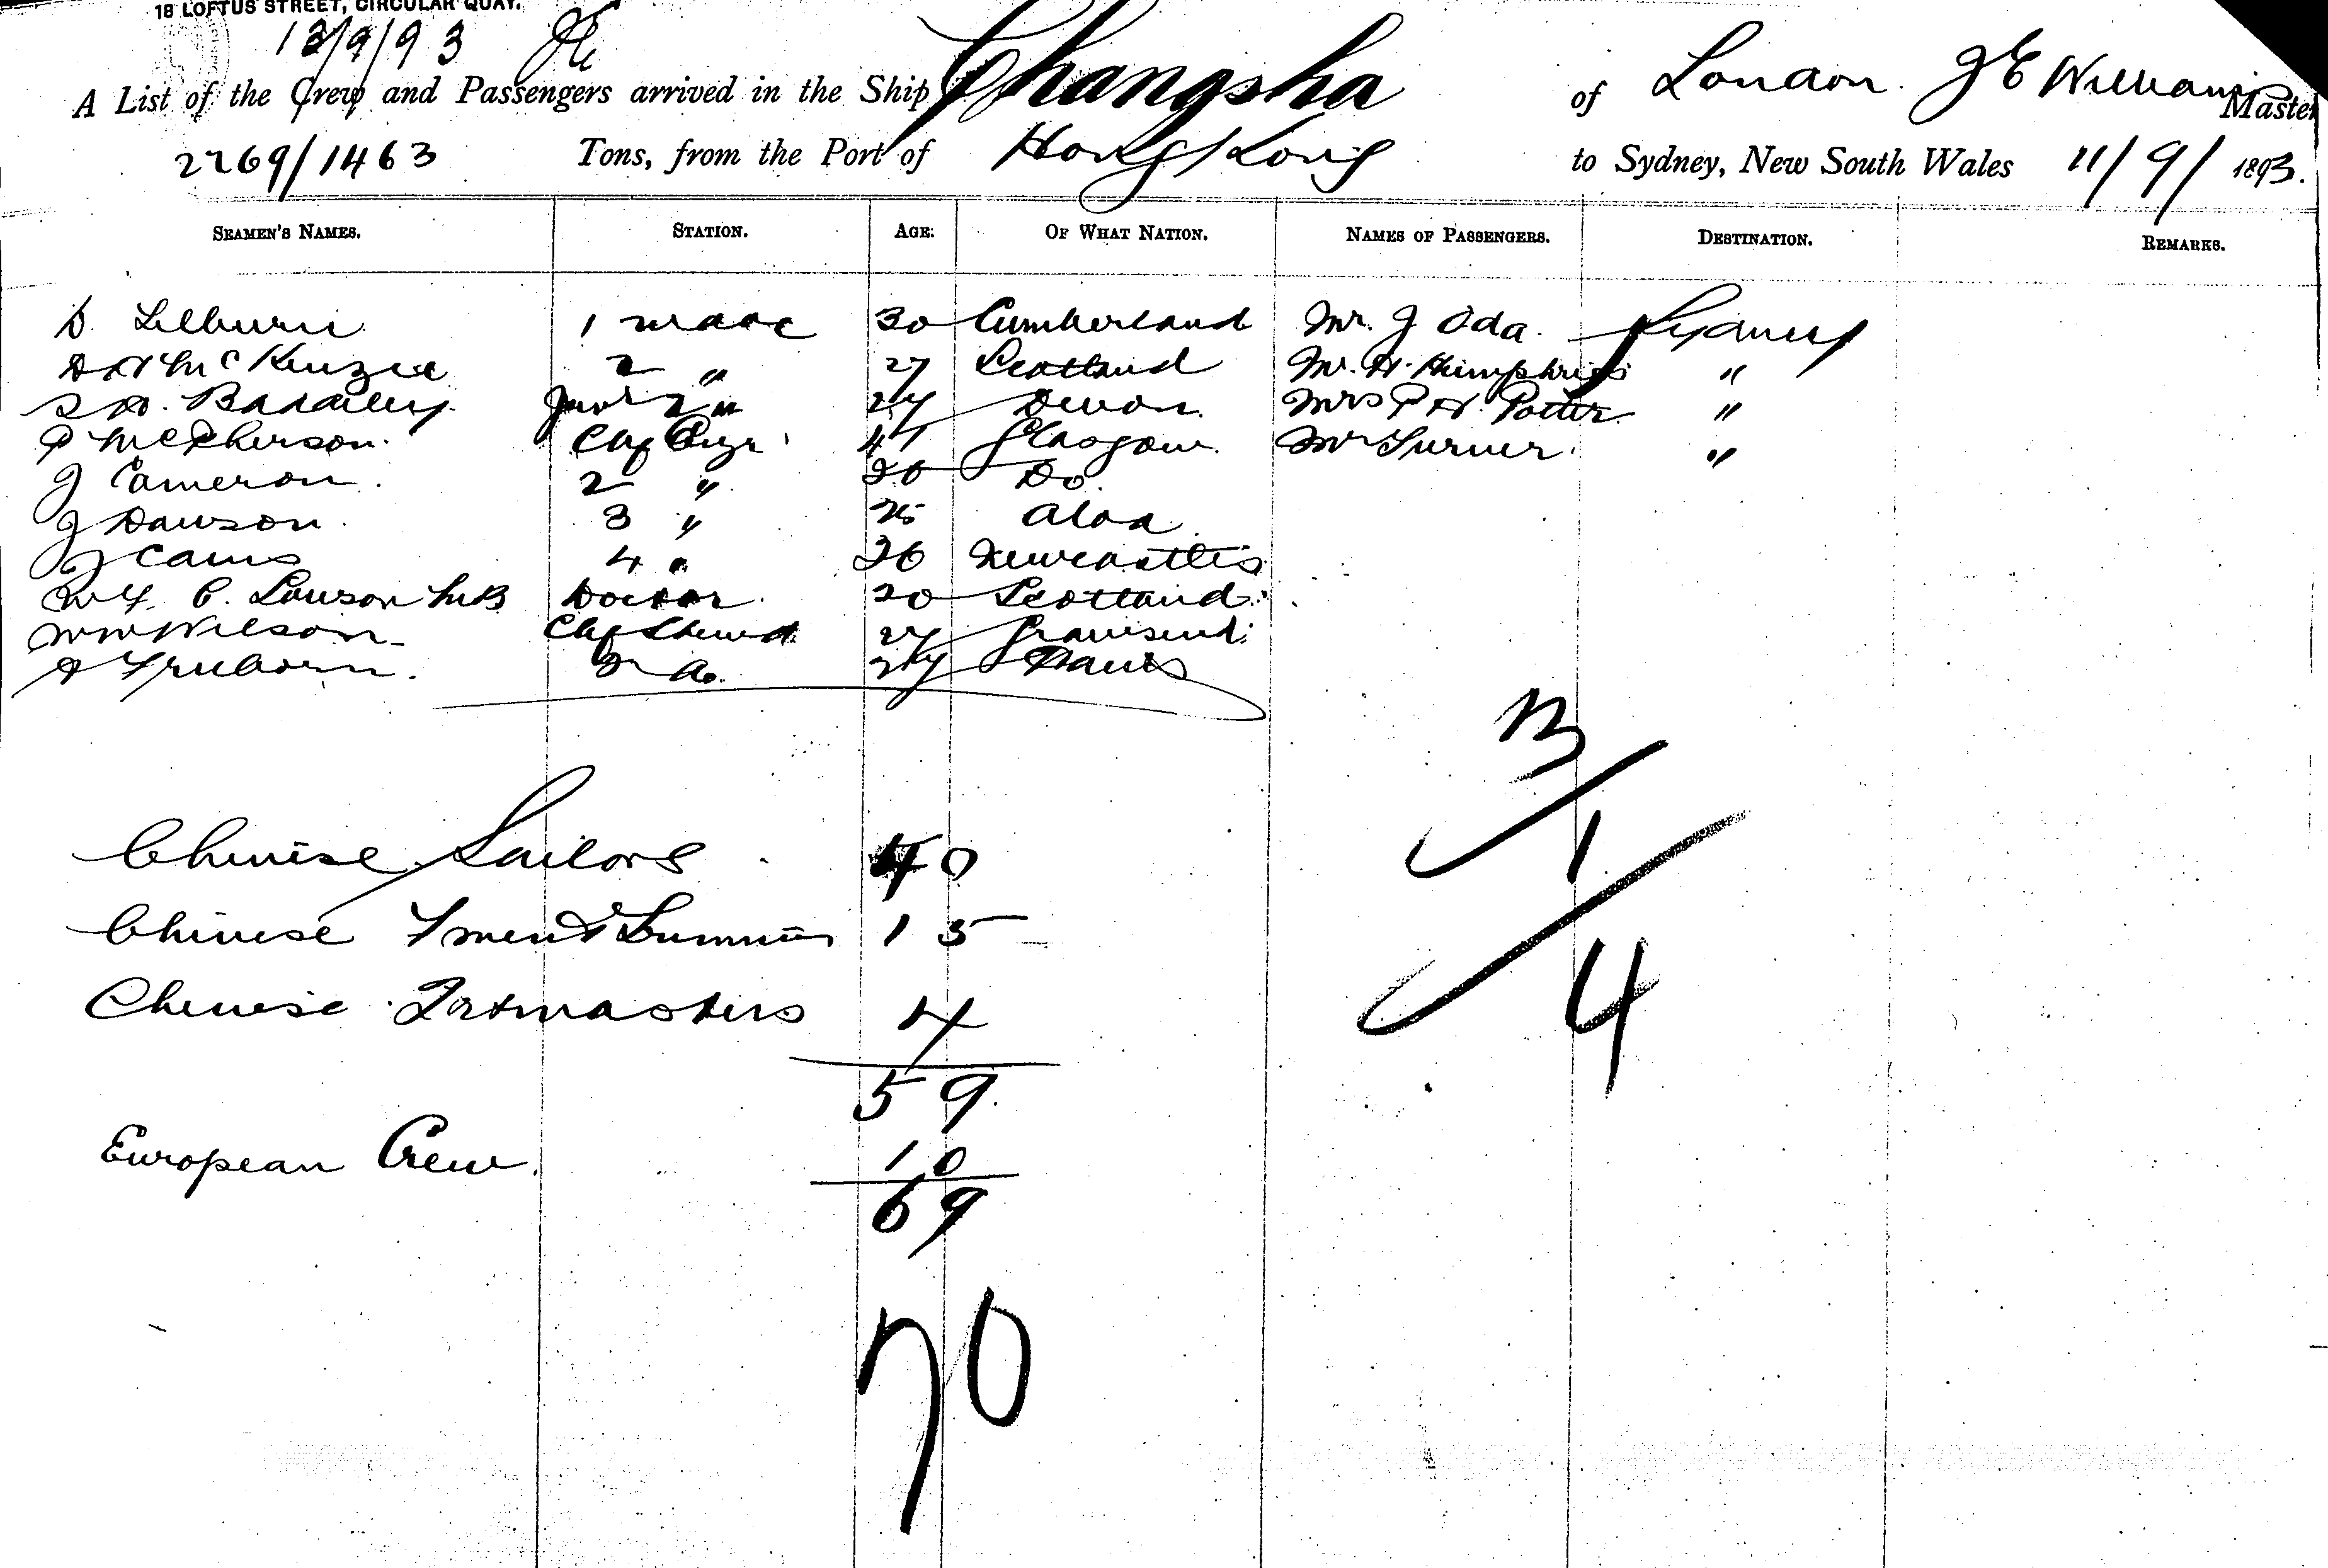 18 LOFTUS STREET, CIRCULAR QUAY.
13/9/93
A List of the Crew and Passengers arrived in the Ship Changsha of London J E Williams Master
2269/1463 Tons, from the Port of Hong Kong to Sydney, New South Wales 11/9/1893.
SEAMEN'S NAMES. STATION. AGE. OF WHAT NATION. NAMES OF PASSENGERS. DESTINATION. REMARKS.
D. Lilburn 1 Mate 30 Cumberland Mr. J Oda. Sydney
McKenzie 2 " 27 Scotland Mr. H. Humphries "
Badailey. Junr 2 " 27 Devon. Mrs P H. Potter "
P McPherson. Chf Engr 47 Glasgow. Mr Turner. "
J Cameron. 2 " 26 Do.
J Dawson. 3 " 25 Aloa
J Cairns 4 " 26 Newcastle
C. Lawson M.B Doctor. 30 Scotland.
W W Wilson Chf Stewd. 27 Gravesend.
A Freeborn. 2 do. 27 Paris
13/
1/
4
Chinese Sailors 40
Chinese Fmen & Trimmers 15
Chinese Qrtmasters 4
59
European Crew. 10
69
70